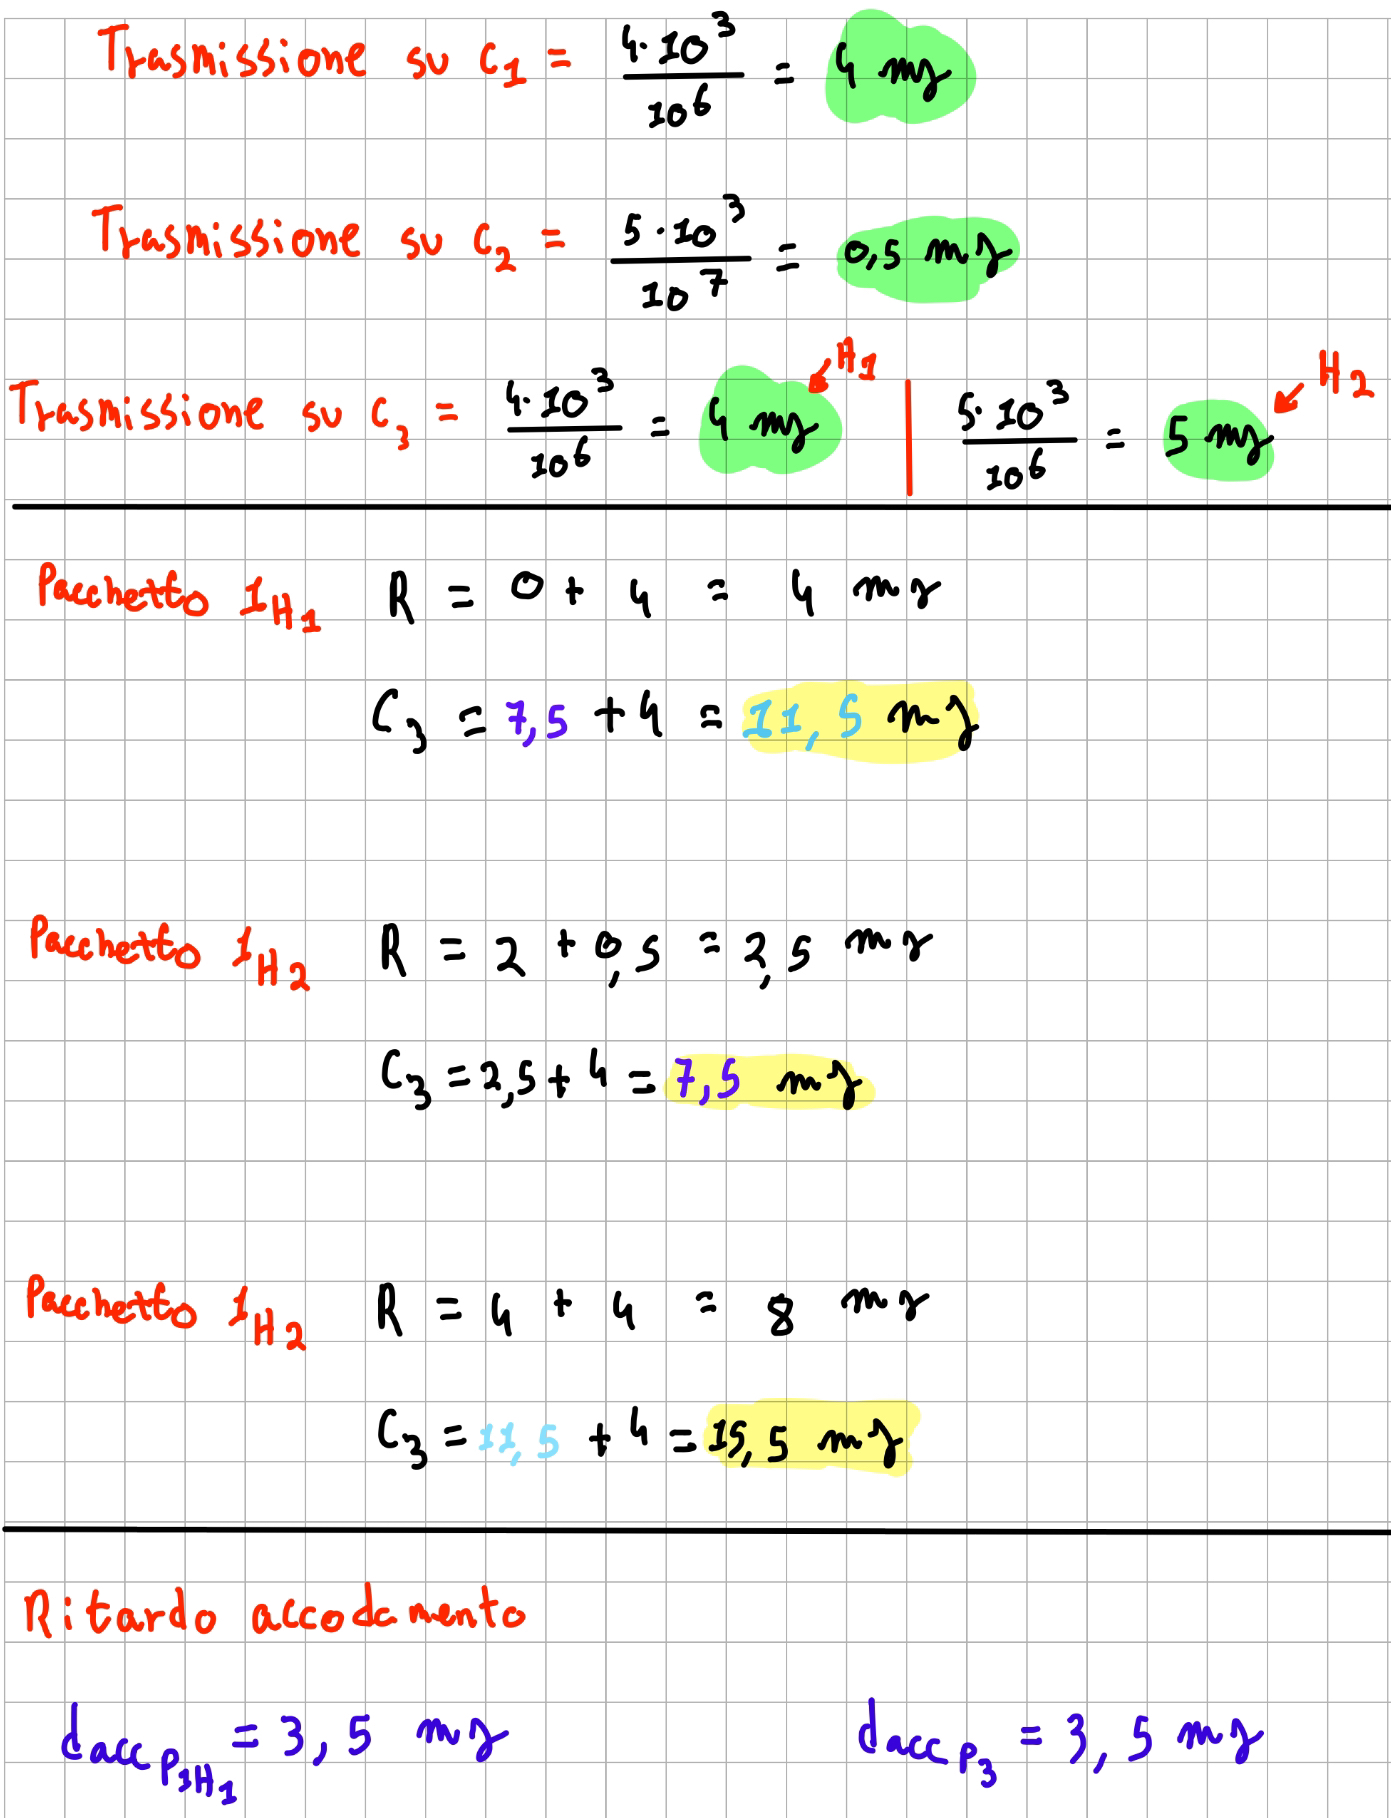 Trasmissione su C₁ = 4·10³ / 10⁶ = 4 ms
Trasmissione su C₂ = 5·10³ / 10⁷ = 0,5 ms
Trasmissione su C₃ = 4·10³ / 10⁶ = 4 ms ← H₁ | 5·10³ / 10⁶ = 5 ms ← H₂
Pacchetto 1_H₁ R = 0 + 4 = 4 ms
C₃ = 7,5 + 4 = 11,5 ms
Pacchetto 1_H₂ R = 2 + 0,5 = 2,5 ms
C₃ = 2,5 + 4 = 7,5 ms
Pacchetto 1_H₂ R = 4 + 4 = 8 ms
C₃ = 11,5 + 4 = 15,5 ms
Ritardo accodamento
dacc_P₁H₁ = 3,5 ms dacc_P₃ = 3,5 ms